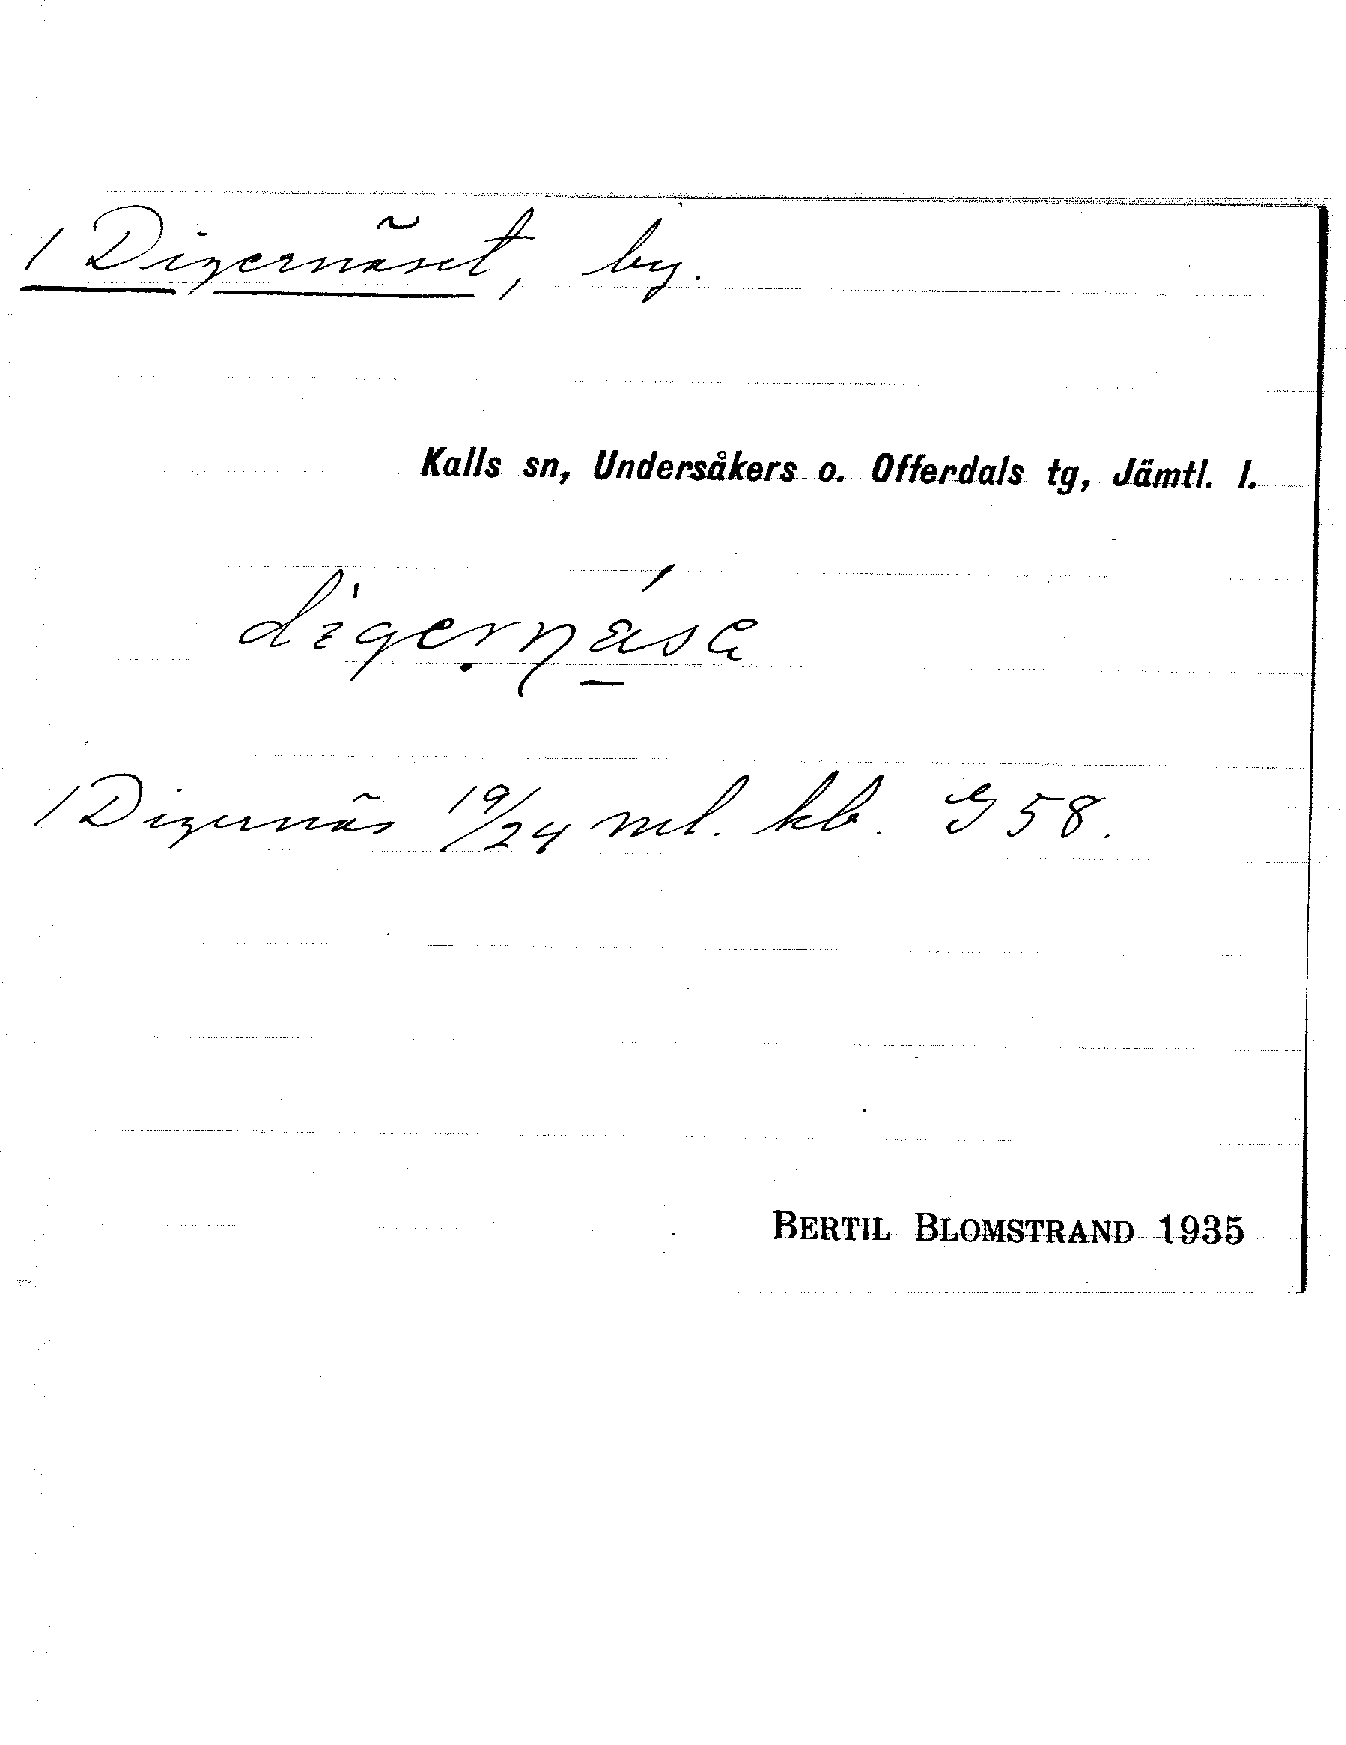 1 Digernäset, by.
Kalls sn, Undersåkers o. Offerdals tg, Jämtl. l.
digernäsa
1 Digernäs 19/24 ml. kb. G 58.
BERTIL BLOMSTRAND 1935